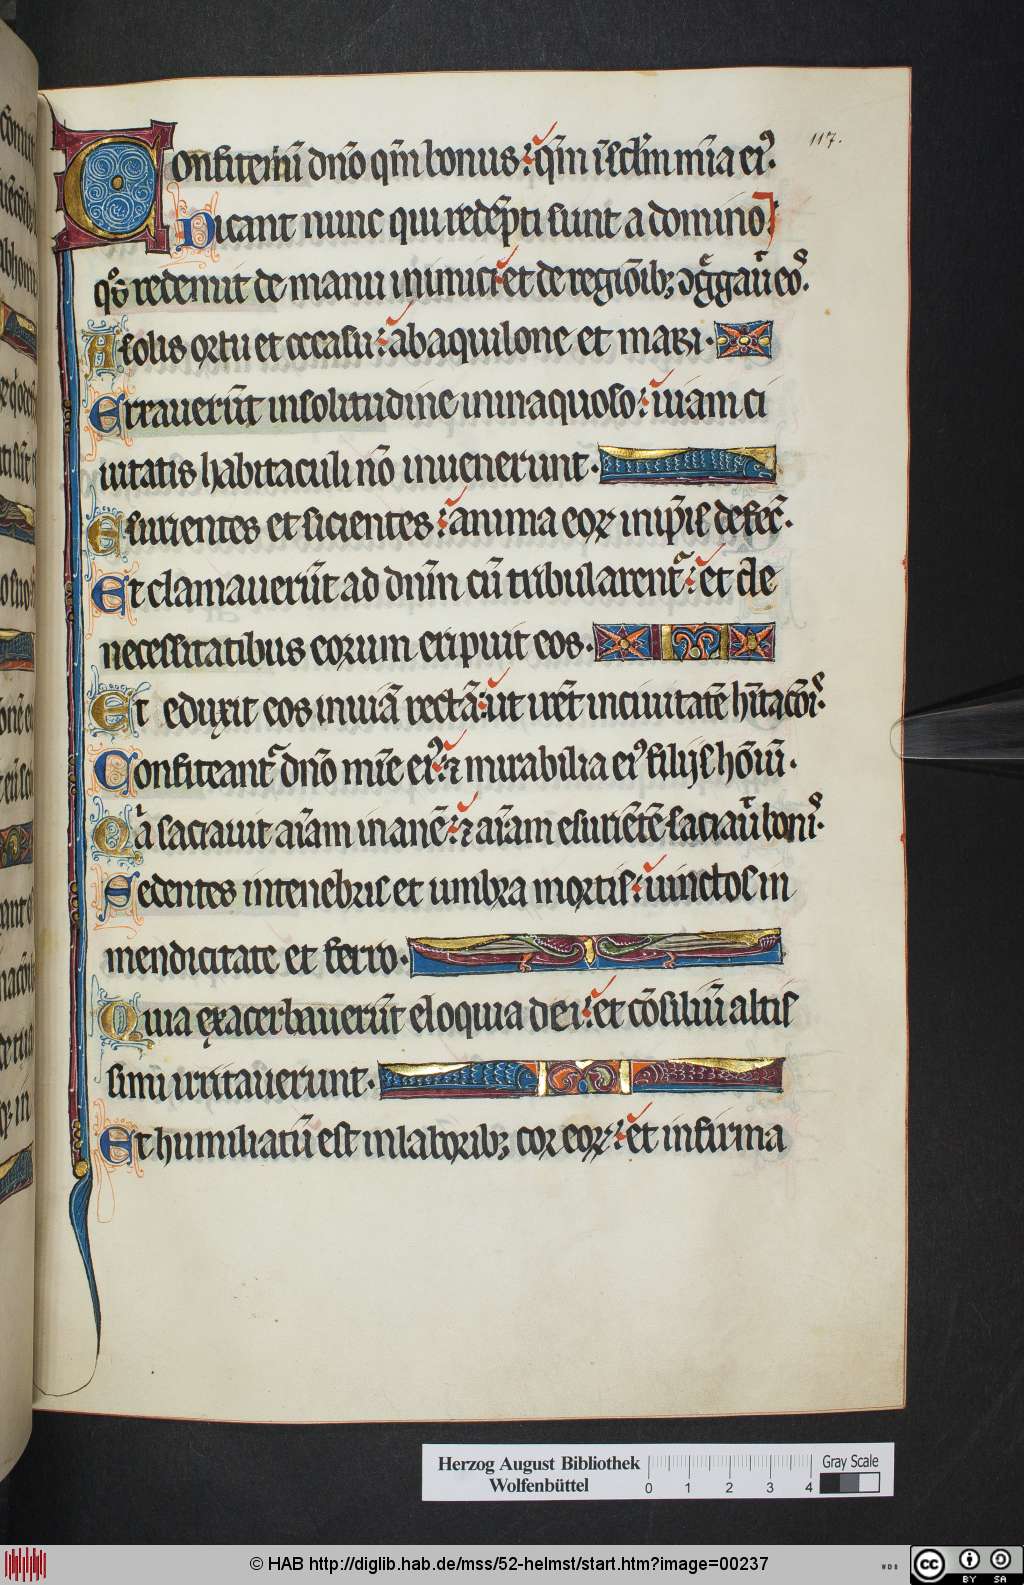 117.
Confitemĩ dño qm̃ bonus: qm̃ ĩ sclm̃ mĩa eiꝰ.
Dicant nunc qui redẽpti sunt a domino
qͦs redemit de manu inimici: et de regiõibꝫ ꝯgͣgauͭ eoˢ.
A solis ortu et occasu: ab aquilone et mari.
Errauerũt in solitudine in inaquoso: uiam ci
uitatis habitaculi nõ inuenerunt.
Esurientes et sicientes: anima eoꝝ in ip̃is defec̃.
Et clamauerũt ad dnm̃ cũ tribularentͬ: et de
necessitatibus eorum eripuit eos.
Et eduxit eos in uiã rectã: ut irẽt in ciuitatẽ hĩtacõiˢ.
Confiteantͬ dño mĩe eiꝰ: ⁊ mirabilia eiꝰ filijs hõiũ.
Qͥa saciauit aĩam inanẽ: ⁊ aĩam esuriẽtẽ saciauͭ boniˢ.
Sedentes in tenebris et umbra mortis: uinctos in
mendicitate et ferro.
Quia exacerbauerũt eloquia dei: et cõsiliũ altis
simi irritauerunt.
Et humiliatũ est in laboribꝫ cor eoꝝ: et infirma
Herzog August Bibliothek
Wolfenbüttel
0 1 2 3 4
Gray Scale
© HAB http://diglib.hab.de/mss/52-helmst/start.htm?image=00237
WDB
cc BY SA